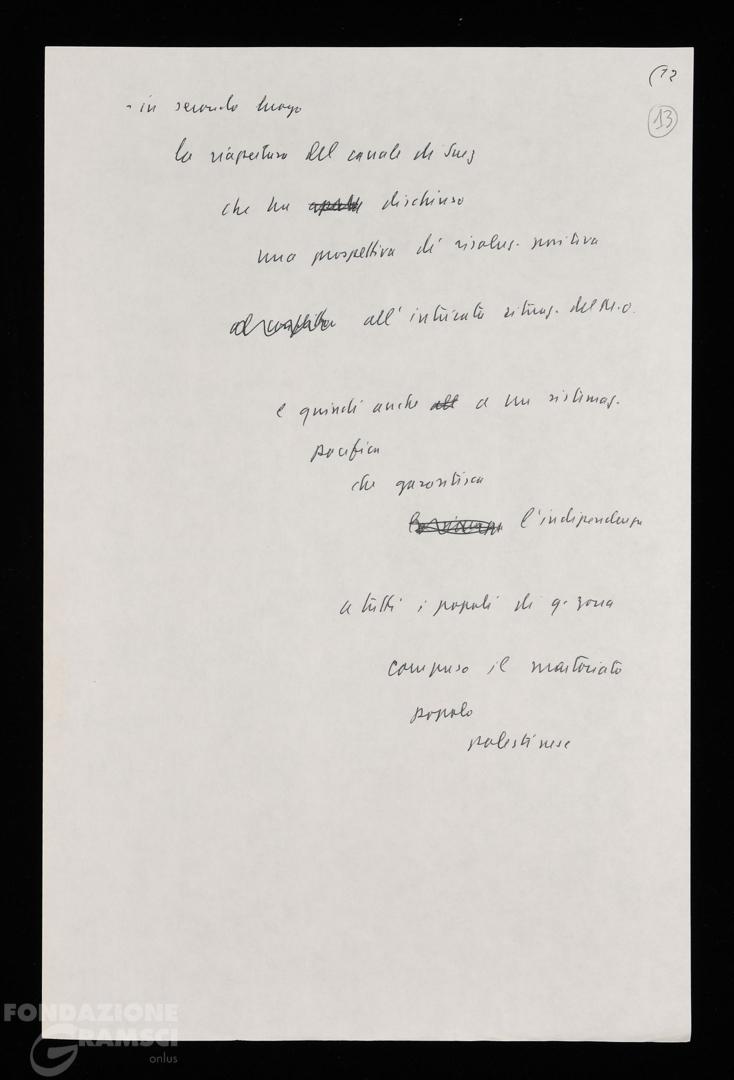 (12
13
- in secondo luogo
la riapertura del canale di Suez
che ha dischiuso
una prospettiva di risoluz. positiva
all'intricata situaz. del M.O.
e quindi anche all a un sistemaz.
pacifica
che garantisca
l'indipendenza
a tutti i popoli di q. zona
compreso il martoriato
popolo
palestinese
FONDAZIONE
GRAMSCI
onlus